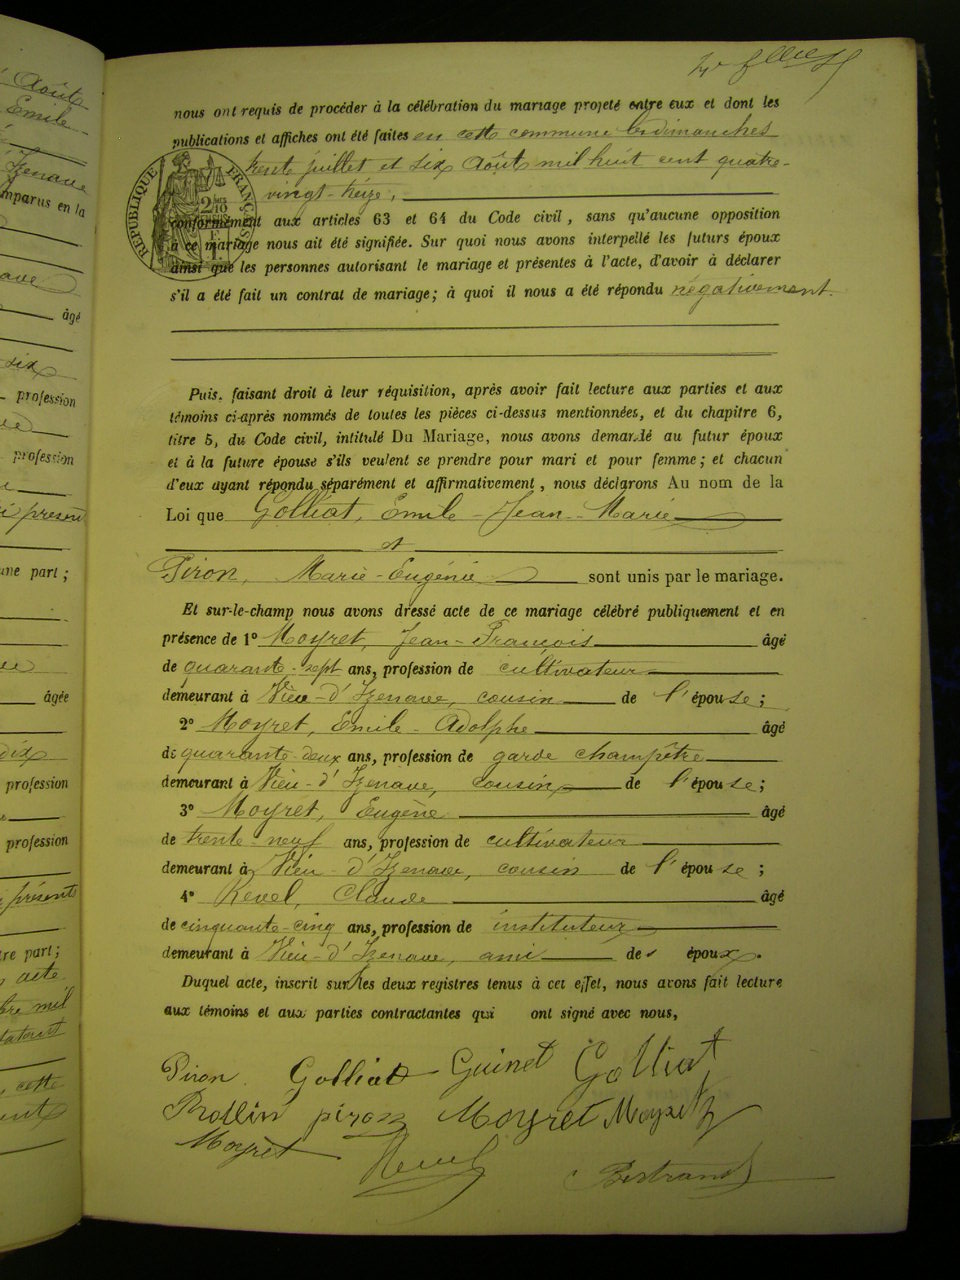 Août
Emile
Izenave
mparus en la
âgé
six
profession
profession
i présent
une part ;
âgée
dix
profession
profession
présente
tre part ;
acte
mil
cette
nous ont requis de procéder à la célébration du mariage projeté entre eux et dont les
publications et affiches ont été faites en cette commune les dimanches
trente juillet et six Août mil huit cent quatre-
vingt-treize,
RÉPUBLIQUE FRANÇAISE
conformément aux articles 63 et 64 du Code civil, sans qu'aucune opposition
à ce mariage nous ait été signifiée. Sur quoi nous avons interpellé les futurs époux
ainsi que les personnes autorisant le mariage et présentes à l'acte, d'avoir à déclarer
s'il a été fait un contrat de mariage; à quoi il nous a été répondu négativement.
Puis, faisant droit à leur réquisition, après avoir fait lecture aux parties et aux
témoins ci-après nommés de toutes les pièces ci-dessus mentionnées, et du chapitre 6,
titre 5, du Code civil, intitulé Du Mariage, nous avons demandé au futur époux
et à la future épouse s'ils veulent se prendre pour mari et pour femme; et chacun
d'eux ayant répondu séparément et affirmativement, nous déclarons Au nom de la
Loi que Golliat, Emile-Jean-Marie
et
Piron, Marie-Eugénie sont unis par le mariage.
Et sur-le-champ nous avons dressé acte de ce mariage célébré publiquement et en
présence de 1° Moyret, Jean-François âgé
de quarante-sept ans, profession de cultivateur
demeurant à Vieu-d'Izenave, cousin de l'épouse;
2° Moyret, Emile-Adolphe âgé
de quarante-deux ans, profession de garde champêtre
demeurant à Vieu-d'Izenave, cousin de l'épouse;
3° Moyret, Eugène âgé
de trente-neuf ans, profession de cultivateur
demeurant à Vieu-d'Izenave, cousin de l'épouse;
4° Revel, Claude âgé
de cinquante-cinq ans, profession de instituteur
demeurant à Vieu-d'Izenave, ami des époux.
Duquel acte, inscrit sur les deux registres tenus à cet effet, nous avons fait lecture
aux témoins et aux parties contractantes qui ont signé avec nous,
Piron Golliat Guinet Golliat
Rollin piron Moyret Moyret
Moyret Revel Bertrand